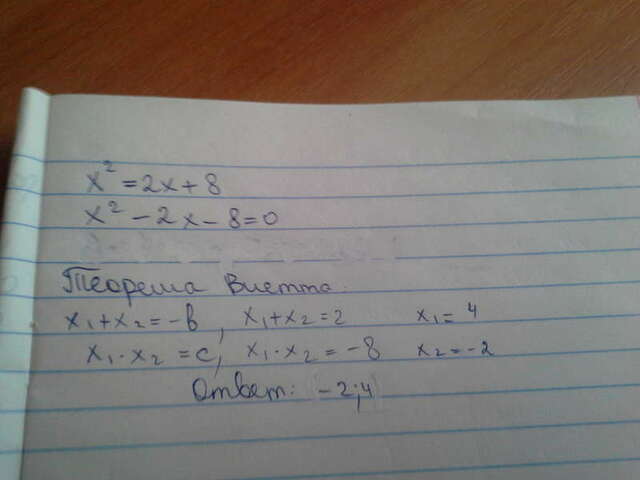 x² = 2x + 8
x² - 2x - 8 = 0
Теорема Виетта.
x₁+x₂ = -b, x₁+x₂ = 2 x₁ = 4
x₁·x₂ = c, x₁·x₂ = -8 x₂ = -2
Ответ: -2;4